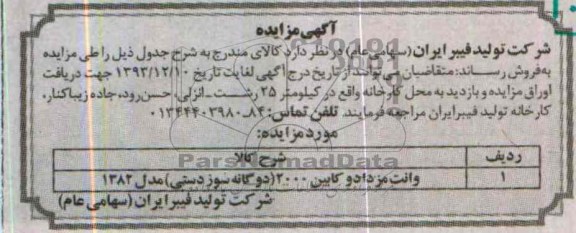 آگهی مزایده
شرکت تولید فیبر ایران (سهامی عام) در نظر دارد کالای مندرج به شرح جدول ذیل را طی مزایده
به فروش رساند: متقاضیان می توانند از تاریخ درج آگهی لغایت تاریخ ۱۳۹۳/۱۲/۱۰ جهت دریافت
اوراق مزایده و بازدید به محل کارخانه واقع در کیلومتر ۲۵ رشت ـ انزلی، حسن رود، جاده زیباکنار،
کارخانه تولید فیبر ایران مراجعه فرمایند. تلفن تماس: ۸۴ـ۰۱۳۴۴۴۰۳۹۸۰
مورد مزایده:
ردیف شرح کالا
۱ وانت مزدا دو کابین ۲۰۰۰ (دوگانه سوز دستی) مدل ۱۳۸۲
شرکت تولید فیبر ایران (سهامی عام)
ParsNamadData